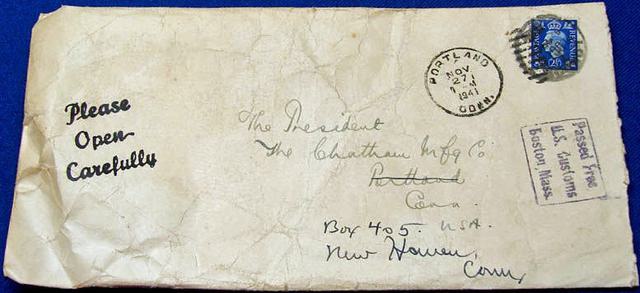 Please
Open
Carefully
PORTLAND
NOV
27
1941
CONN.
POSTAGE REVENUE
2½
Passed Free
U.S. Customs
Boston, Mass.
The President
The Chatham Mfg Co
Portland
Conn.
Box 405. USA.
New Haven,
Conn,